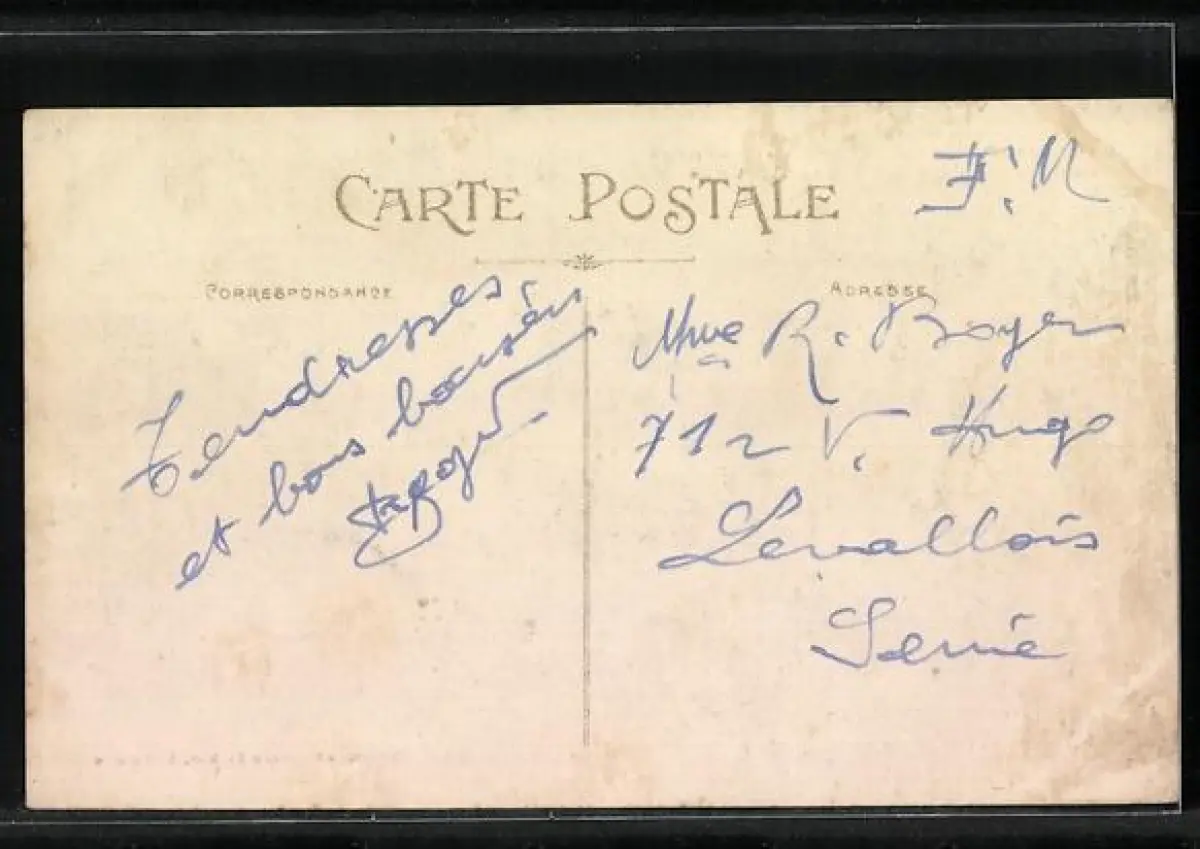 CARTE POSTALE
F. M
CORRESPONDANCE
Tendresses
et bons baisers
ADRESSE
Mme R. Boyer
712 V. Hugo
Levallois
Seine